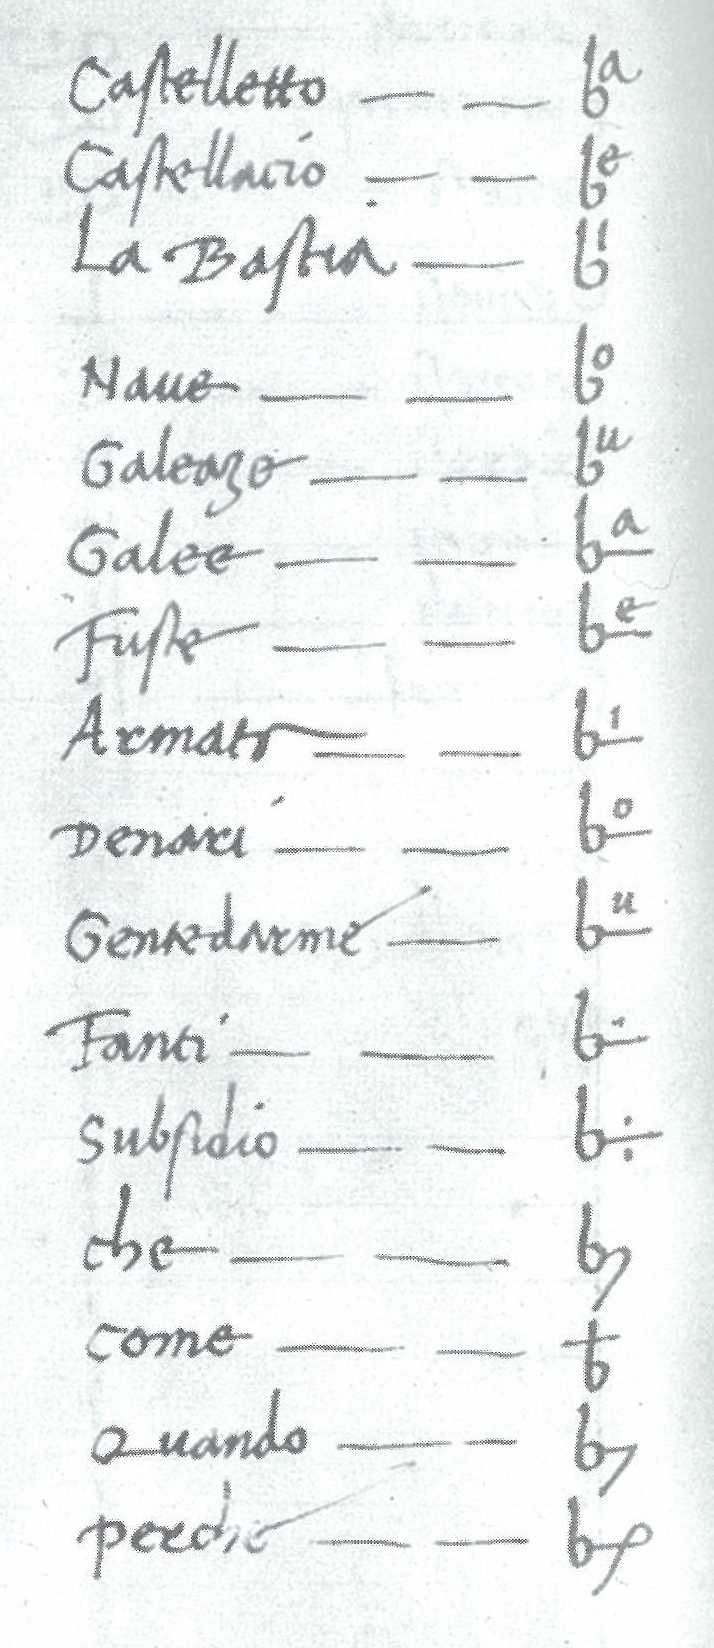 Castelletto — — bᵃ
Castellacio — — bᵉ
La Bastia — bⁱ
Naue — — bᵒ
Galeaze — — bᵘ
Galee — — b–ᵃ
Fuste — — b–ᵉ
Armata — — b–ⁱ
Denari — — b–ᵒ
Gente darme — b–ᵘ
Fanti — — b
Subsidio — — b÷
che — — b
come — — b
Quando — — b
perche — — b